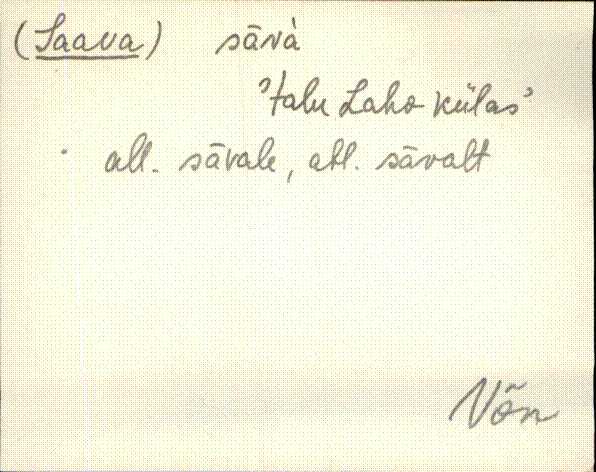 (Saava) sāvà
'talu Laho külas'
all. sāvale, abl. sāvalt
Võn